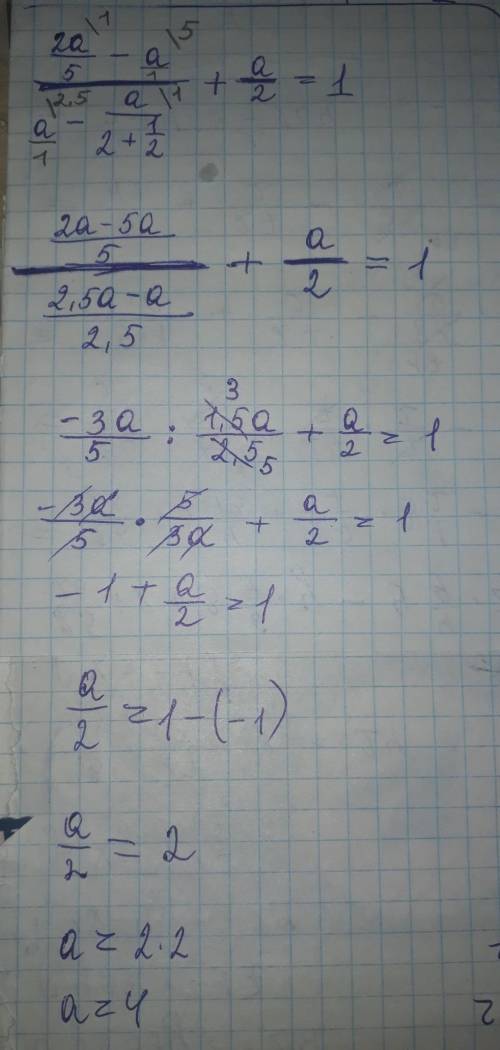 (2a/5 \1 - a/1 \5) / (a/1 \2,5 - a/(2 + 1/2) \1) + a/2 = 1
((2a - 5a)/5) / ((2,5a - a)/2,5) + a/2 = 1
-3a/5 : 1,5a/2,5 3 5 + a/2 = 1
-3a/5 · 5/3a + a/2 = 1
- 1 + a/2 = 1
a/2 = 1 - (-1)
a/2 = 2
a = 2 · 2
a = 4